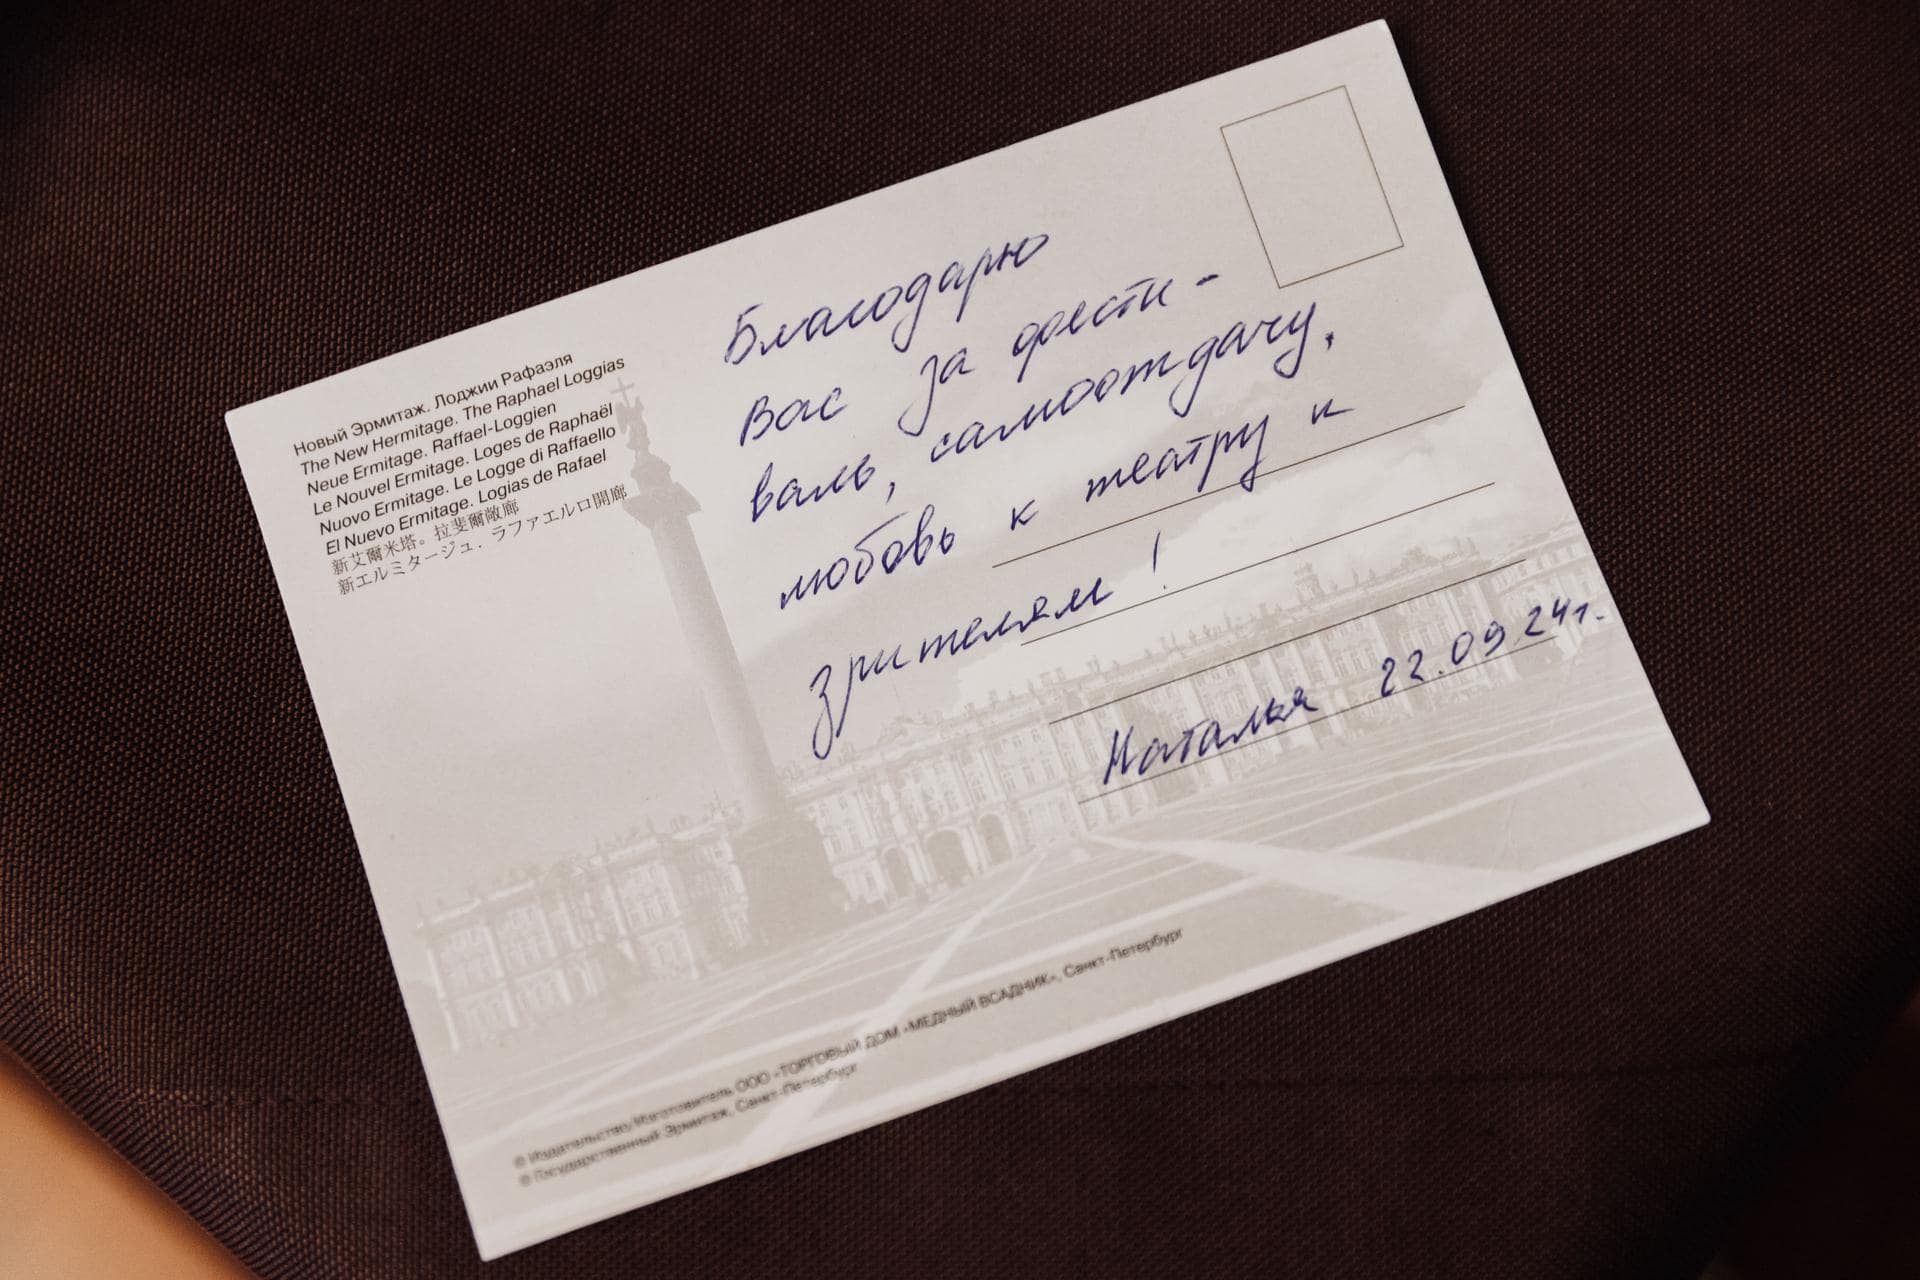 Новый Эрмитаж. Лоджии Рафаэля
The New Hermitage. The Raphael Loggias
Neue Ermitage. Raffael-Loggien
Le Nouvel Ermitage. Loges de Raphaël
Nuovo Ermitage. Le Logge di Raffaello
El Nuevo Ermitage. Logias de Rafael
新艾爾米塔。拉斐爾敞廊
新エルミタージュ．ラファエルロ開廊
Благодарю
Вас за фести-
валь, самоотдачу,
любовь к театру и
зрителям!
Наталья 22.09.24г.
© Издательство/Изготовитель ООО «ТОРГОВЫЙ ДОМ «МЕДНЫЙ ВСАДНИК», Санкт-Петербург
© Государственный Эрмитаж, Санкт-Петербург